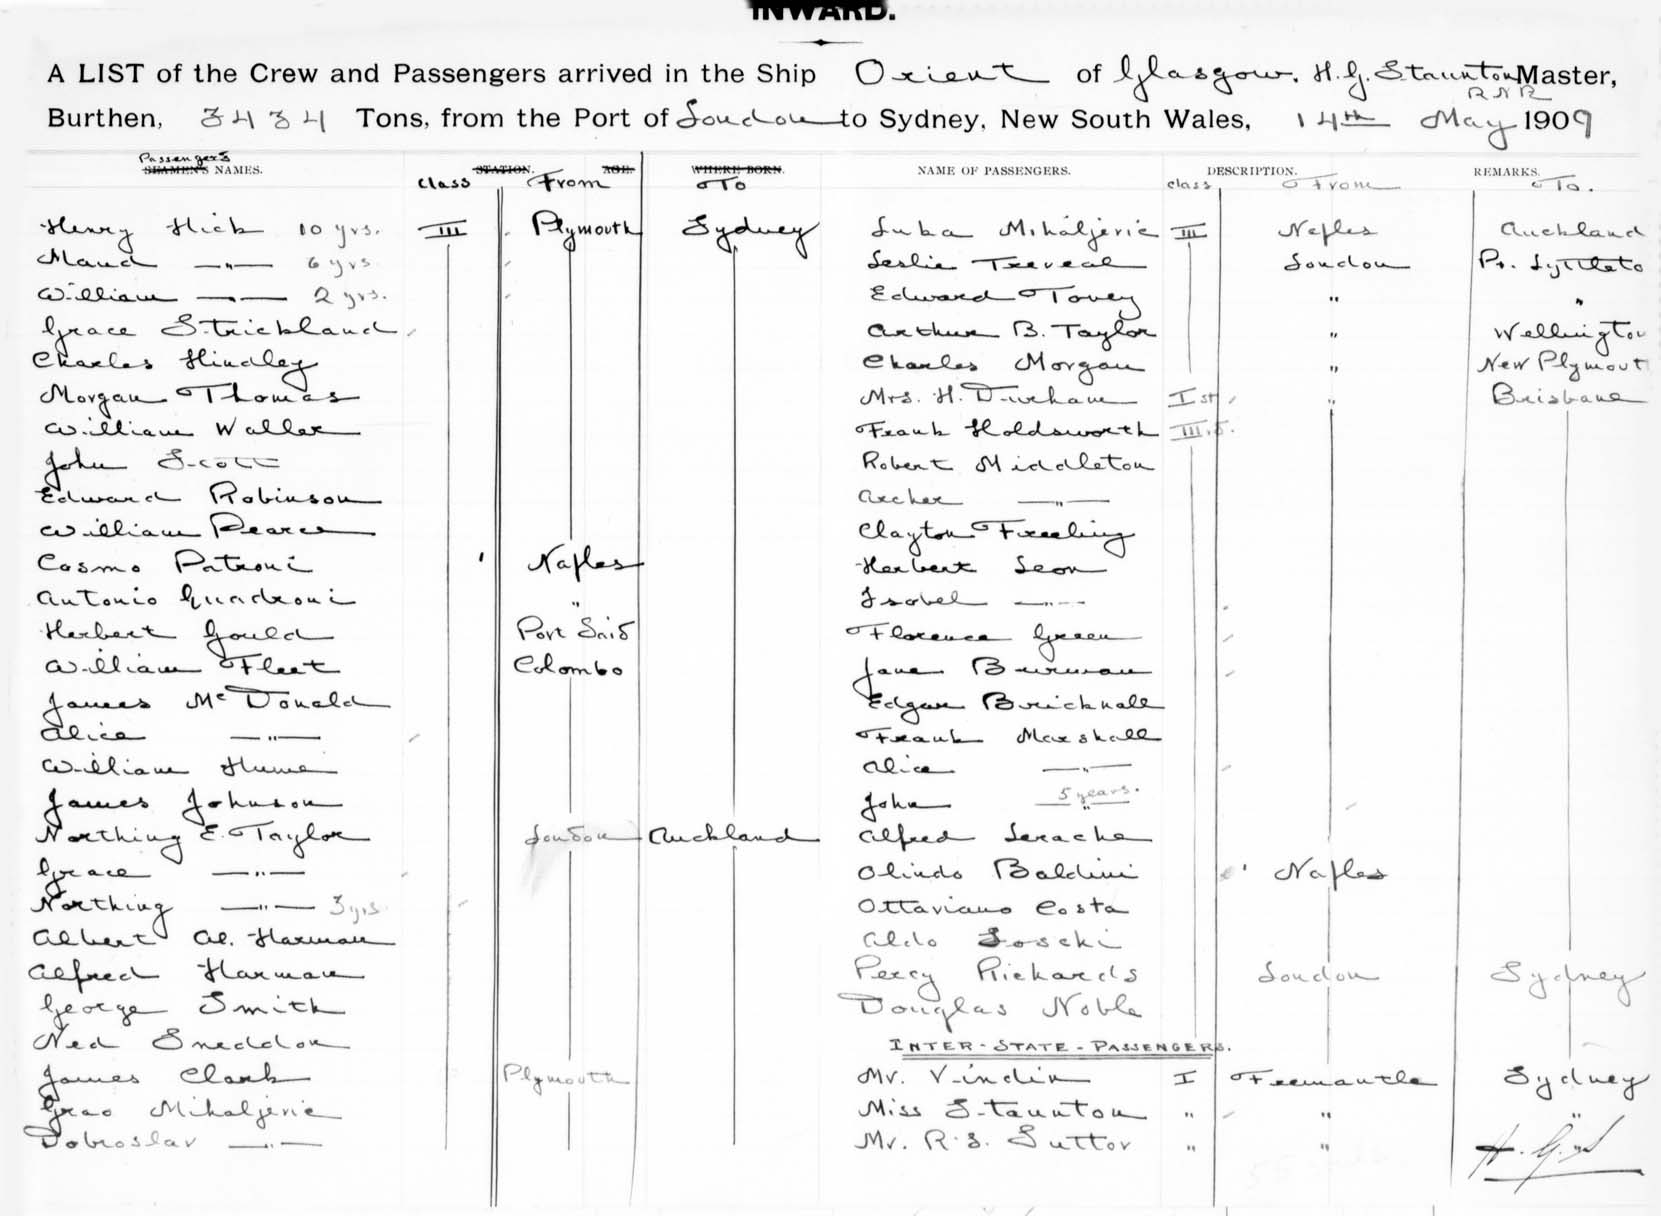 INWARD.
A LIST of the Crew and Passengers arrived in the Ship Orient of Glasgow, H.G. Staunton Master,
R N R
Burthen, 3434 Tons, from the Port of London to Sydney, New South Wales, 14th May 1909
Passengers
SEAMEN'S NAMES. STATION. AGE. WHERE BORN. NAME OF PASSENGERS. DESCRIPTION. REMARKS.
Class From To class From To.
Henry Hick 10 yrs. III Plymouth Sydney
Maud —"— 6 yrs.
William —"— 2 yrs.
Grace Strickland
Charles Hindley
Morgan Thomas
William Waller
John Scott
Edward Robinson
William Pearce
Cosmo Patroni Naples
Antonio Quadroni "
Herbert Gould Port Said
William Fleet Colombo
James McDonald
Alice —"—
William Hume
James Johnson
Northing E. Taylor London Auckland
Grace —"—
Northing —"— 3 yrs.
Albert Al. Harman
Alfred Harman
George Smith
Ned Sneddon
James Clark Plymouth
Grao Mihaljevic
Dobroslav —"—
Luka Mihaljevic III Naples Auckland
Leslie Treveal London Pt. Lyttleto
Edward Tovey " "
Arthur B. Taylor " Wellington
Charles Morgan " New Plymout
Mrs. H. Durham Ist " Brisbane
Frank Holdsworth III
Robert Middleton
Archer —"—
Clayton Freeling
Herbert Leon
Isobel —"—
Florence Green
Jane Burman
Edgar Bricknall
Frank Marshall
Alice —"—
John —"— 5 years.
Alfred Lerache
Olindo Baldini Naples
Ottaviano Costa
Aldo Soscki
Percy Rickards London Sydney
Douglas Noble
INTER-STATE-PASSENGERS.
Mr. Vindin I Fremantle Sydney
Miss Staunton " " "
Mr. R.S. Suttor " "
H. G. S